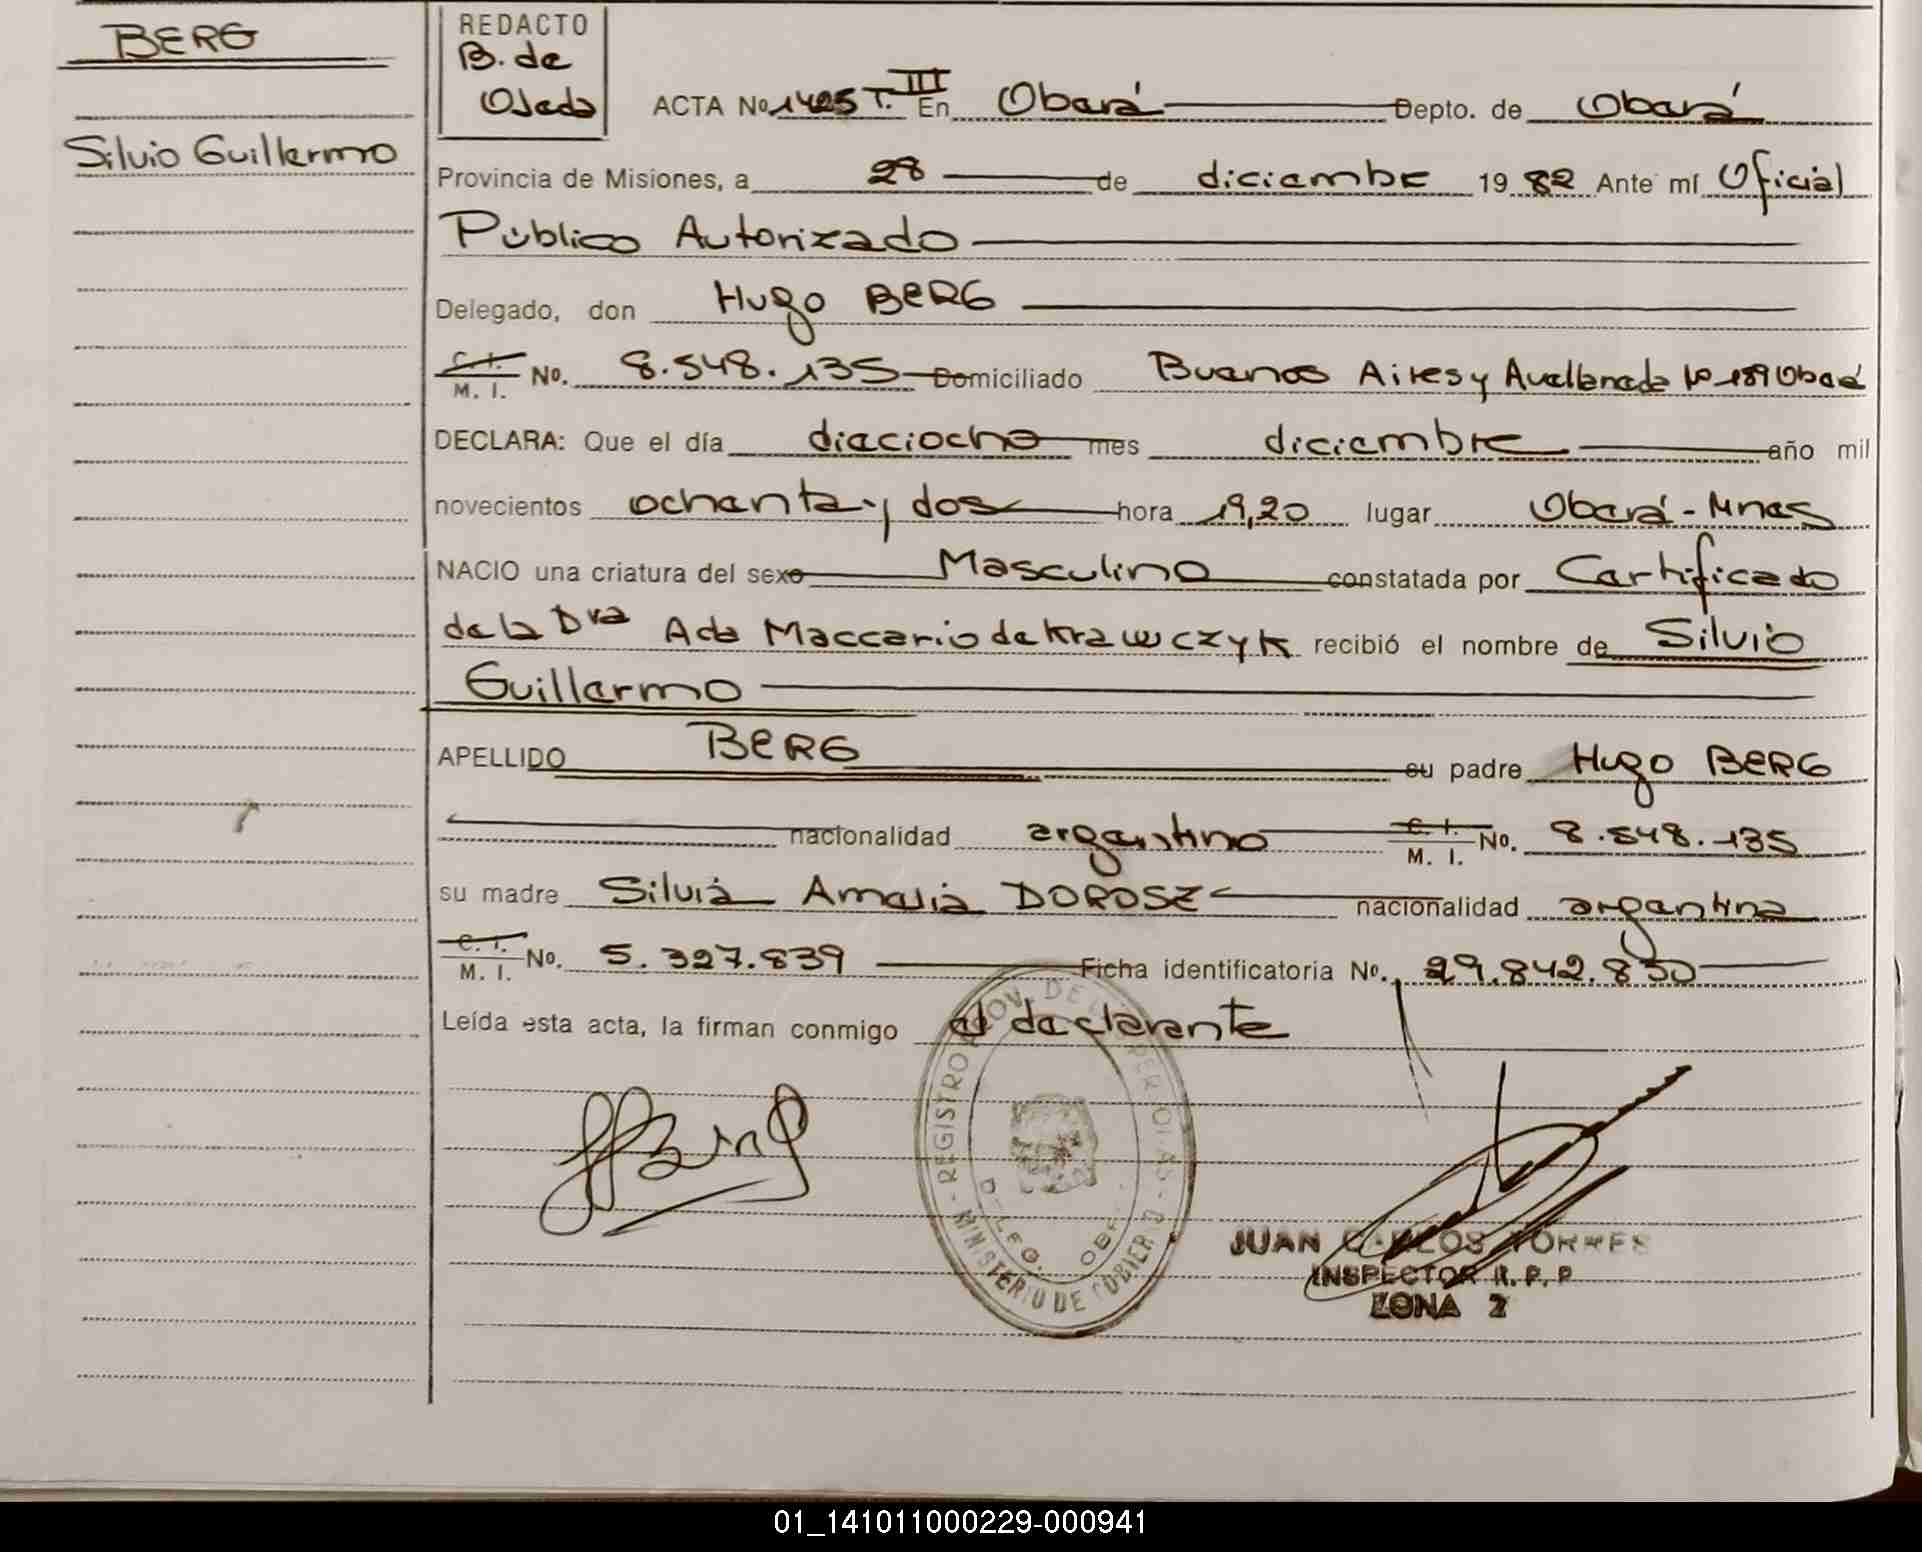 BERG
Silvio Guillermo
REDACTO
B. de
Ojeda
ACTA No 1425 T. III En Oberá Depto. de Oberá
Provincia de Misiones, a 28 de diciembre 19 82 Ante mí Oficial
Público Autorizado
Delegado, don Hugo BERG
C. I.
M. I. No. 8.548.135 Domiciliado Buenos Aires y Avellaneda No 189 Oberá
DECLARA: Que el día dieciocho mes diciembre año mil
novecientos ochenta y dos hora 19,20 lugar Oberá - Mnes
NACIO una criatura del sexo Masculino constatada por Certificado
de la Dra Ada Maccario de Krawczyk recibió el nombre de Silvio
Guillermo
APELLIDO BERG su padre Hugo BERG
nacionalidad argentino C. I.
M. I. No. 8.548.135
su madre Silvia Amalia DOROSZ nacionalidad argentina
C. I.
M. I. No. 5.327.839 Ficha identificatoria No. 29.842.830
Leída esta acta, la firman conmigo el declarante
HBerg
REGISTRO PROV. DE L PERSONAS
MINISTERIO DE GOBIERNO
DELEG. OBERÁ
JUAN CARLOS TORRES
INSPECTOR R. P. P
ZONA 2
01_141011000229-000941